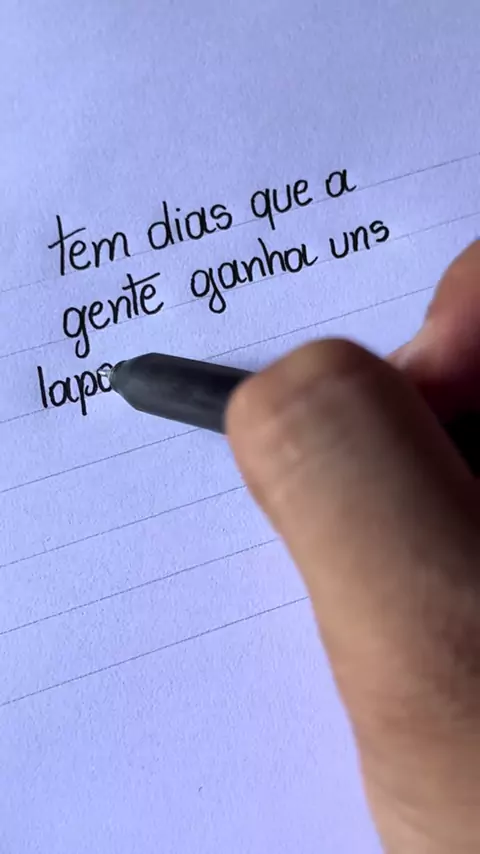 tem dias que a
gente ganha uns
lapo